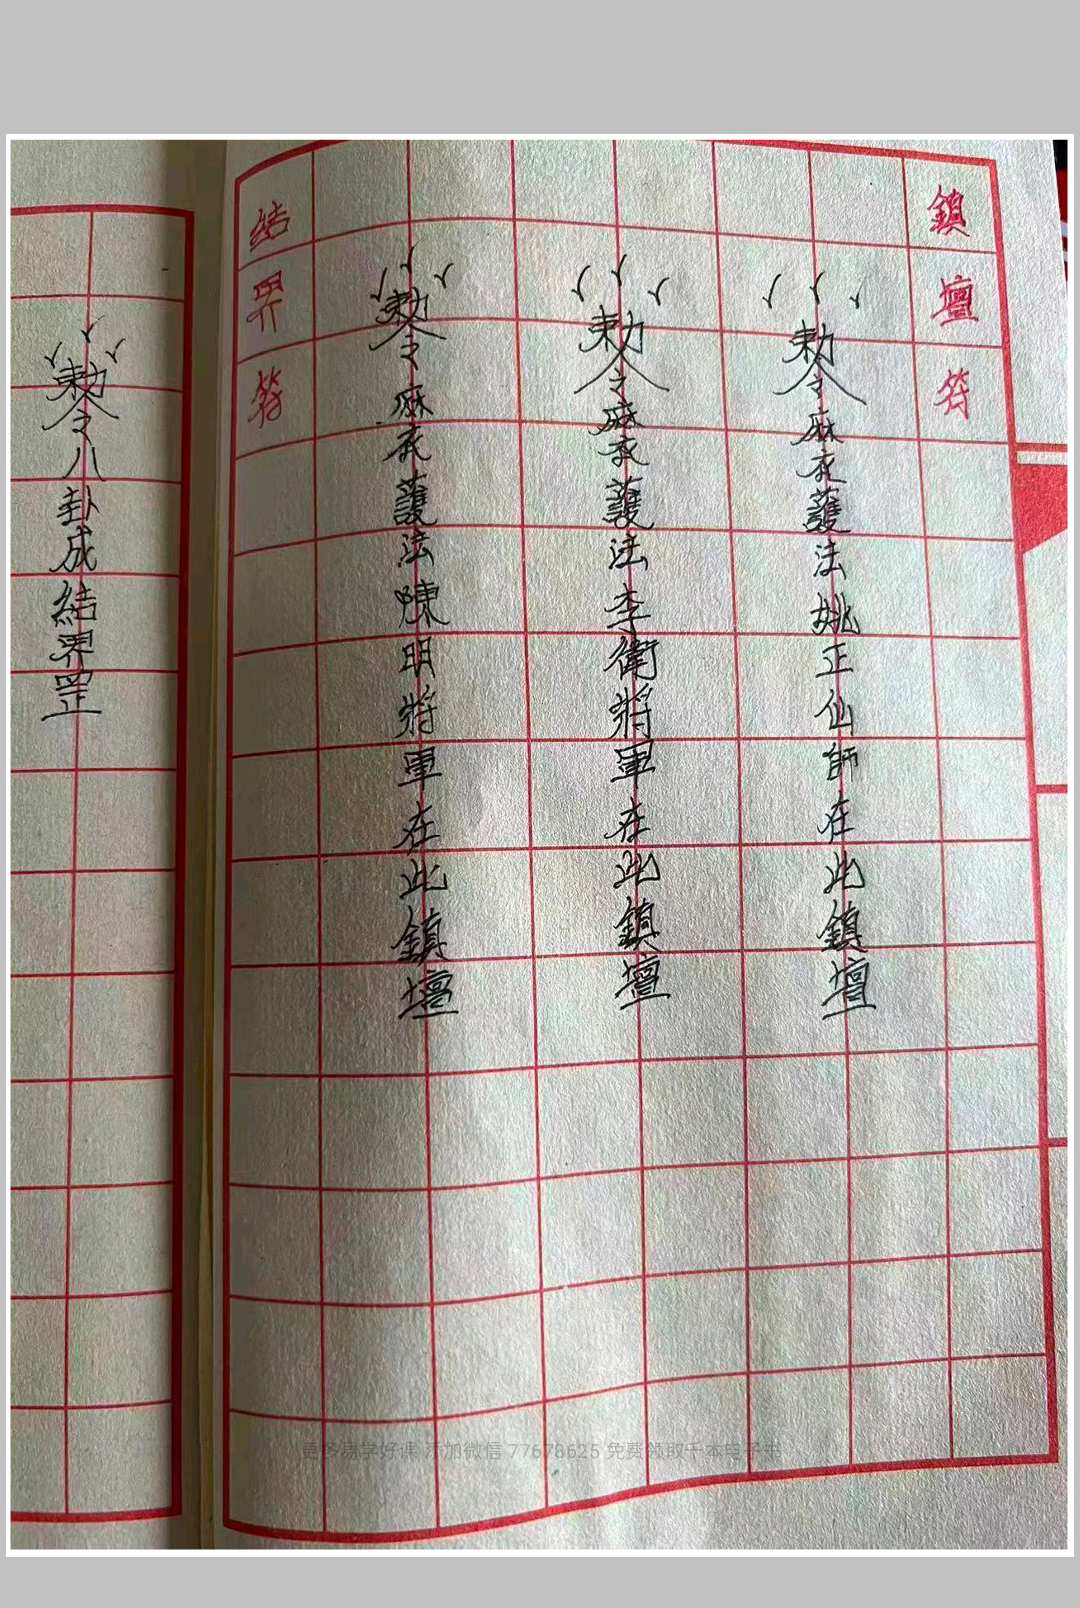 鎮壇符
勅令麻衣護法姚正仙師在此鎮壇
勅令麻衣護法李衛將軍在此鎮壇
勅令麻衣護法陳明將軍在此鎮壇
结界符
勅令八卦成結界罡
更多易学好课 添加微信 77678625 免费领取千本电子书